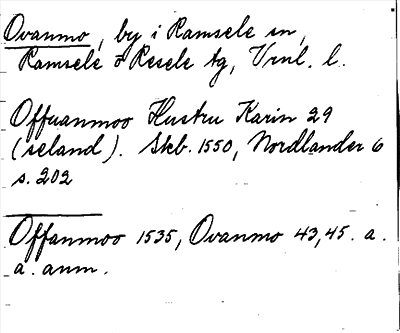 Ovanmo, by i Ramsele sn,
Ramsele o Resele tg, Vrnl. l.
Offuanmoo Hustru Karin 29
(seland). Skb. 1550, Nordlander 6
s. 202
Offanmoo 1535, Ovanmo 43, 45. a.
a. anm.